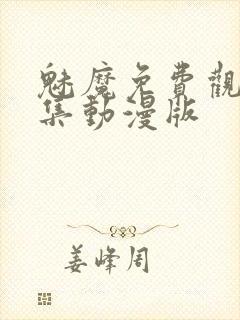 魅魔免費觀
集動漫版
姜峰周